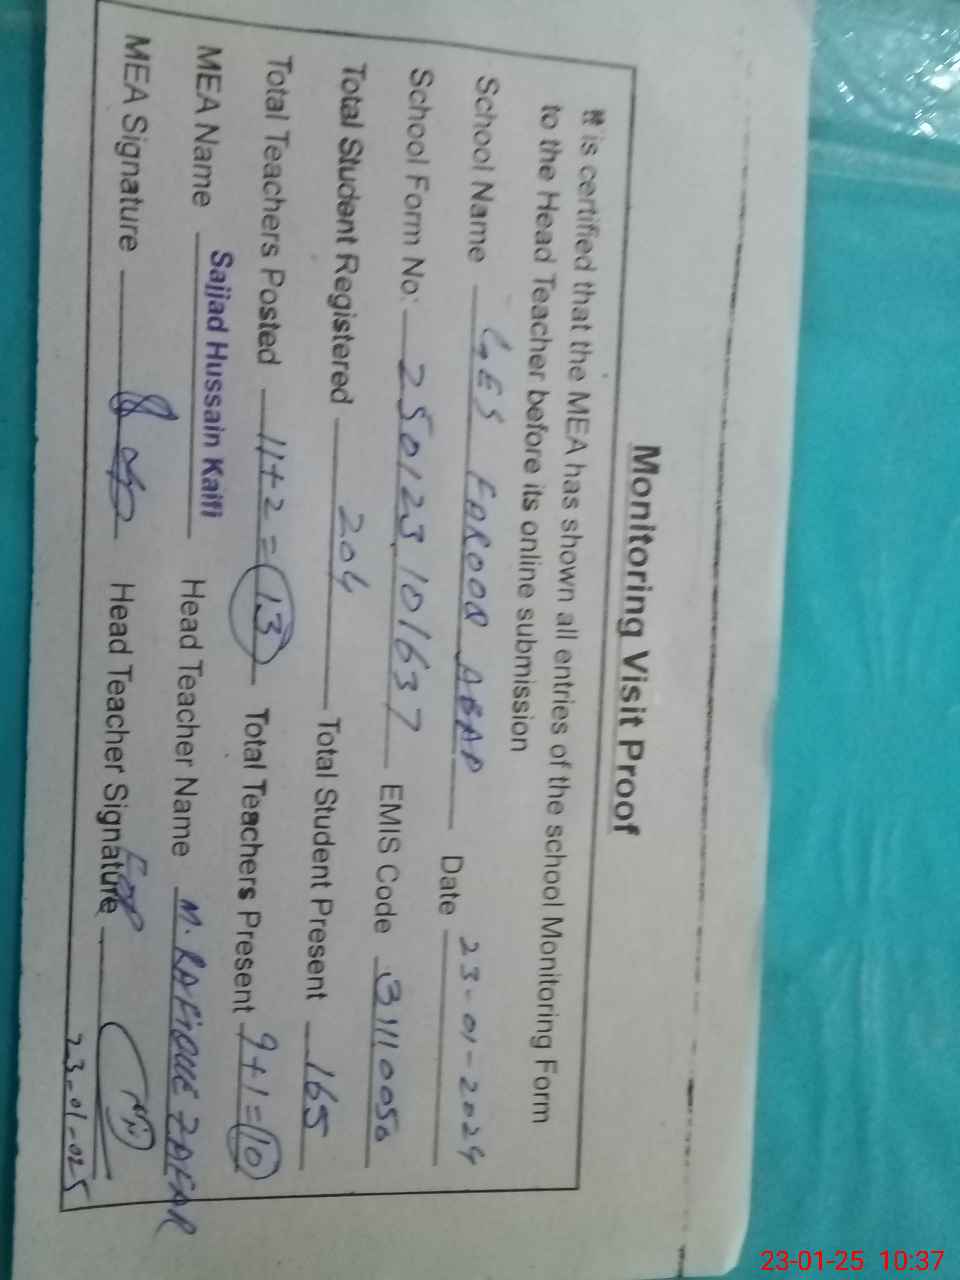 Monitoring Visit Proof
It is certified that the MEA has shown all entries of the school Monitoring Form
to the Head Teacher before its online submission
School Name GES FAROOQ ABAD Date 23-01-2024
School Form No: 2501231010637 EMIS Code 31110050
Total Student Registered 204 Total Student Present 165
Total Teachers Posted 11+2=13 Total Teachers Present 9+1=10
MEA Name Sajjad Hussain Kaifi Head Teacher Name M. RAFIQUE ZAFAR
MEA Signature Head Teacher Signature
23-01-025
23-01-25 10:37